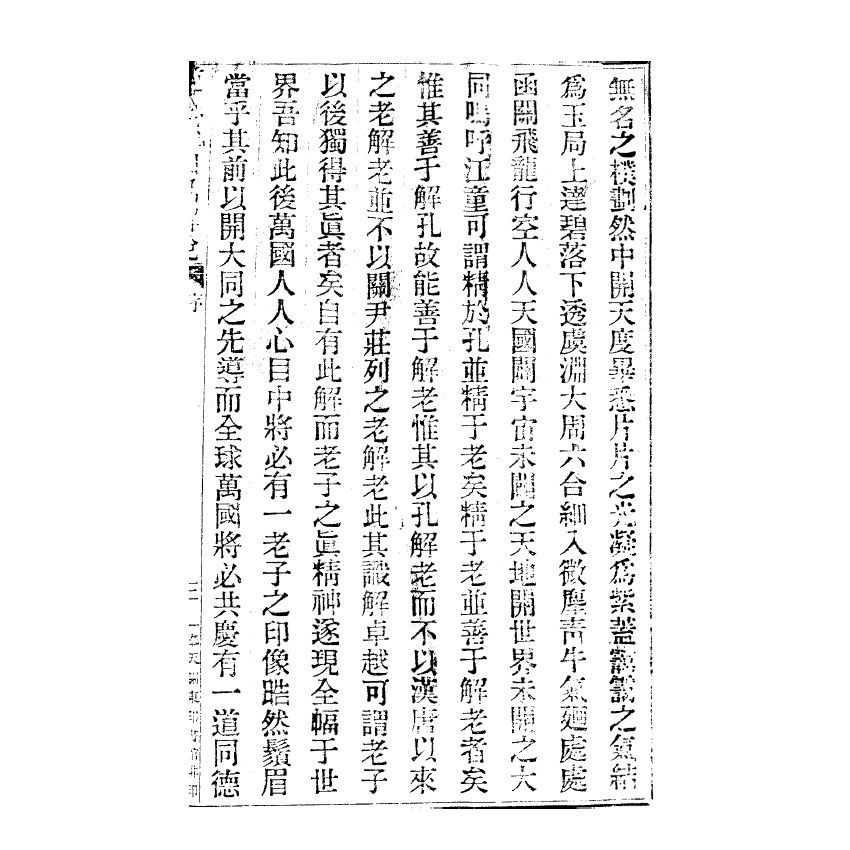 無名之樸劃然中開天度畢悉片片之光凝爲紫蓋靄靄之氣結
爲玉局上達碧落下透虞淵大周六合細入微塵靑牛氣廻處處
函關飛龍行空人人天國闢宇宙未闢之天地開世界未開之大
同嗚呼江童可謂精於孔並精于老矣精于老並善于解老者矣
惟其善于解孔故能善于解老惟其以孔解老而不以漢唐以來
之老解老並不以關尹莊列之老解老此其識解卓越可謂老子
以後獨得其眞者矣自有此解而老子之眞精神遂現全幅于世
界吾知此後萬國人人心目中將必有一老子之印像晧然鬚眉
當乎其前以開大同之先導而全球萬國將必共慶有一道同德
序